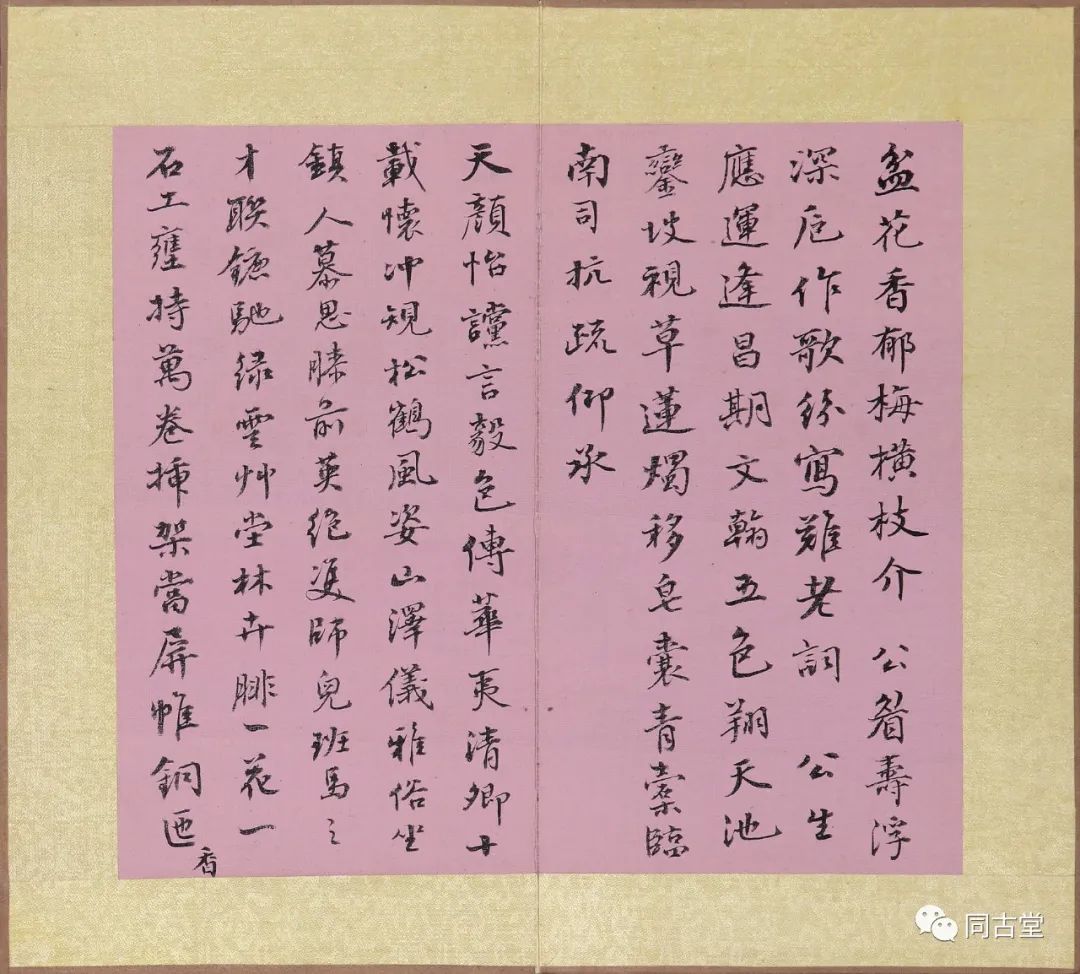 盆花香郁梅橫枝介 公眉壽浮
深卮作歌寫難老詞 公生
應運逢昌期文翰五色翔天池
鑾坡視草蓮燭移皂囊青臨
南司抗疏仰承
天顏怡讜言毅色傳華夷清卿十
載懷沖規松鶴風姿山澤儀雅俗坐
鎮人慕思膝前英絕雙師兒班馬之
才聯鑣馳綠雲艸堂林卉腓一花一
石土壅持萬卷插架當屏帷銅匜
香
同古堂